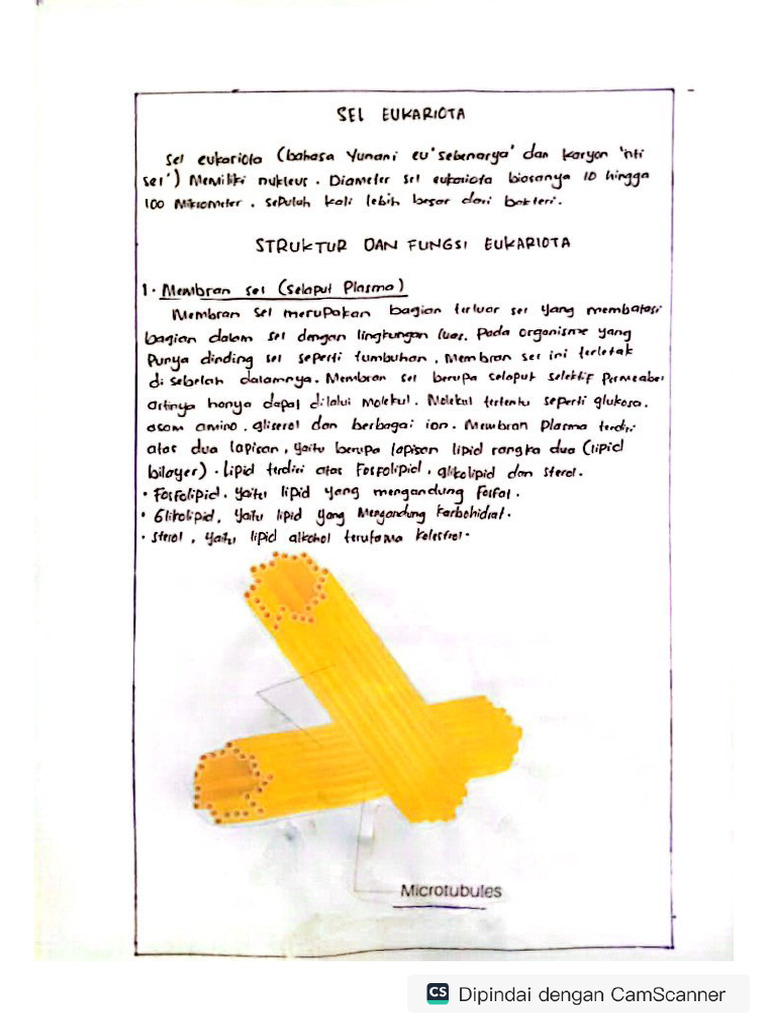 SEL EUKARIOTA
Sel eukariota (bahasa Yunani eu 'sebenarya' dan karyon 'nti
sel') Memiliki nukleus. Diameter sel eukariota biasanya 10 hingga
100 Mikrometer. sepuluh kali lebih besar dari bakteri.
STRUKTUR DAN FUNGSI EUKARIOTA
1. Membran sel (Selaput Plasma)
Membran sel merupakan bagian terluar sel yang membatasi
bagian dalam sel dengan lingkungan luar. Pada organisme yang
Punya dinding sel seperti tumbuhan, Membran sel ini terletak
di sebelah dalamnya. Membran sel berupa selaput selektif Permeabel
artinya hanya dapat dilalui Molekul. Molekul tertentu seperti glukosa.
asam amino. gliserol dan berbagai ion. Membran Plasma terdiri
atas dua lapisan, yaitu berupa lapisan lipid rangka dua (lipid
bilayer). Lipid terdiri atas Fosfolipid, glikolipid dan sterol.
• Fosfolipid. yaitu lipid yang mengandung Fosfat.
• Glikolipid, yaitu lipid yang Mengandung karbohidrat.
• Sterol, yaitu lipid alkohol terutama kolestrol.
Microtubules
CS Dipindai dengan CamScanner